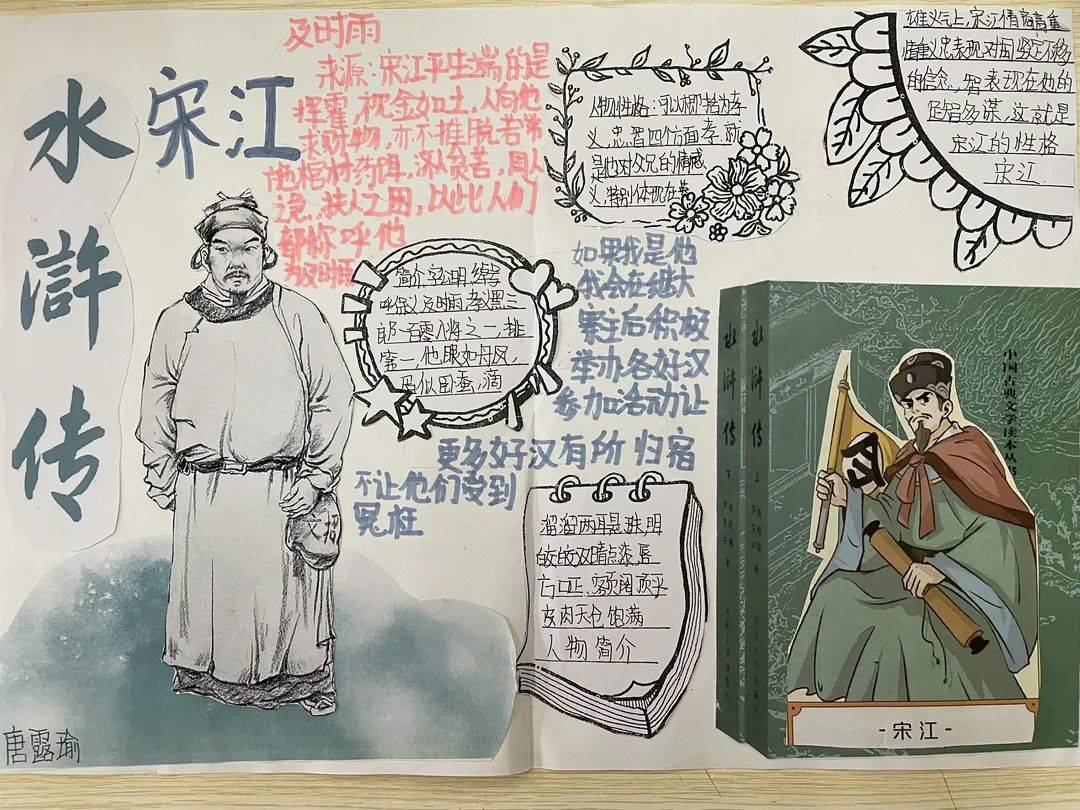 水浒传
宋江
及时雨
来源:宋江平生端的是
挥霍,视金如土,人向他
求财物,亦不推脱若常
施棺材药饵,济贫苦,周人
之急,扶人之困,以此人们
都称呼他
为及时雨
人物性格:可以概括为孝
义,忠智四个方面孝,就
是他对父兄的情感
义,特别体现在
在义气上,宋江情高高重
情重义忠表现对国坚定不移
的信念,智表现在他的
足智多谋,这就是
宋江的性格
宋江.
简介字公明,绰号
呼保义及时雨孝黑三
郎一百零八将之一,排
第一,他眼如丹凤,
眉似卧蚕,滴
溜溜两耳悬珠,明
皎皎双睛点漆唇
方口正,额阔顶平
皮肉天仓饱满
人物简介
如果我是他
我会在继大
寨主后积极
举办各好汉
参加活动让
更多好汉有所归宿
不让他们受到
冤枉
水浒传 下
水浒传 上
中国古典文学读本丛书
-宋江-
唐露瑜